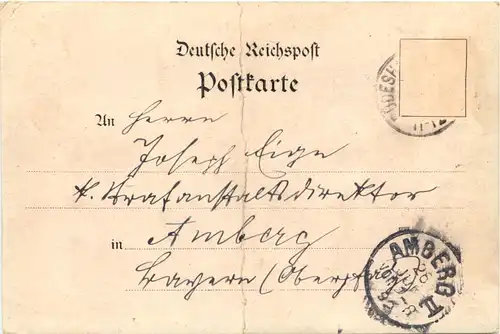 Deutsche Reichspost
Postkarte
An Herrn
Joseph Eige
k. Strafanstaltsdirektor
in Amberg
Bayern (Oberpfalz)
AMBERG II
26
JUN